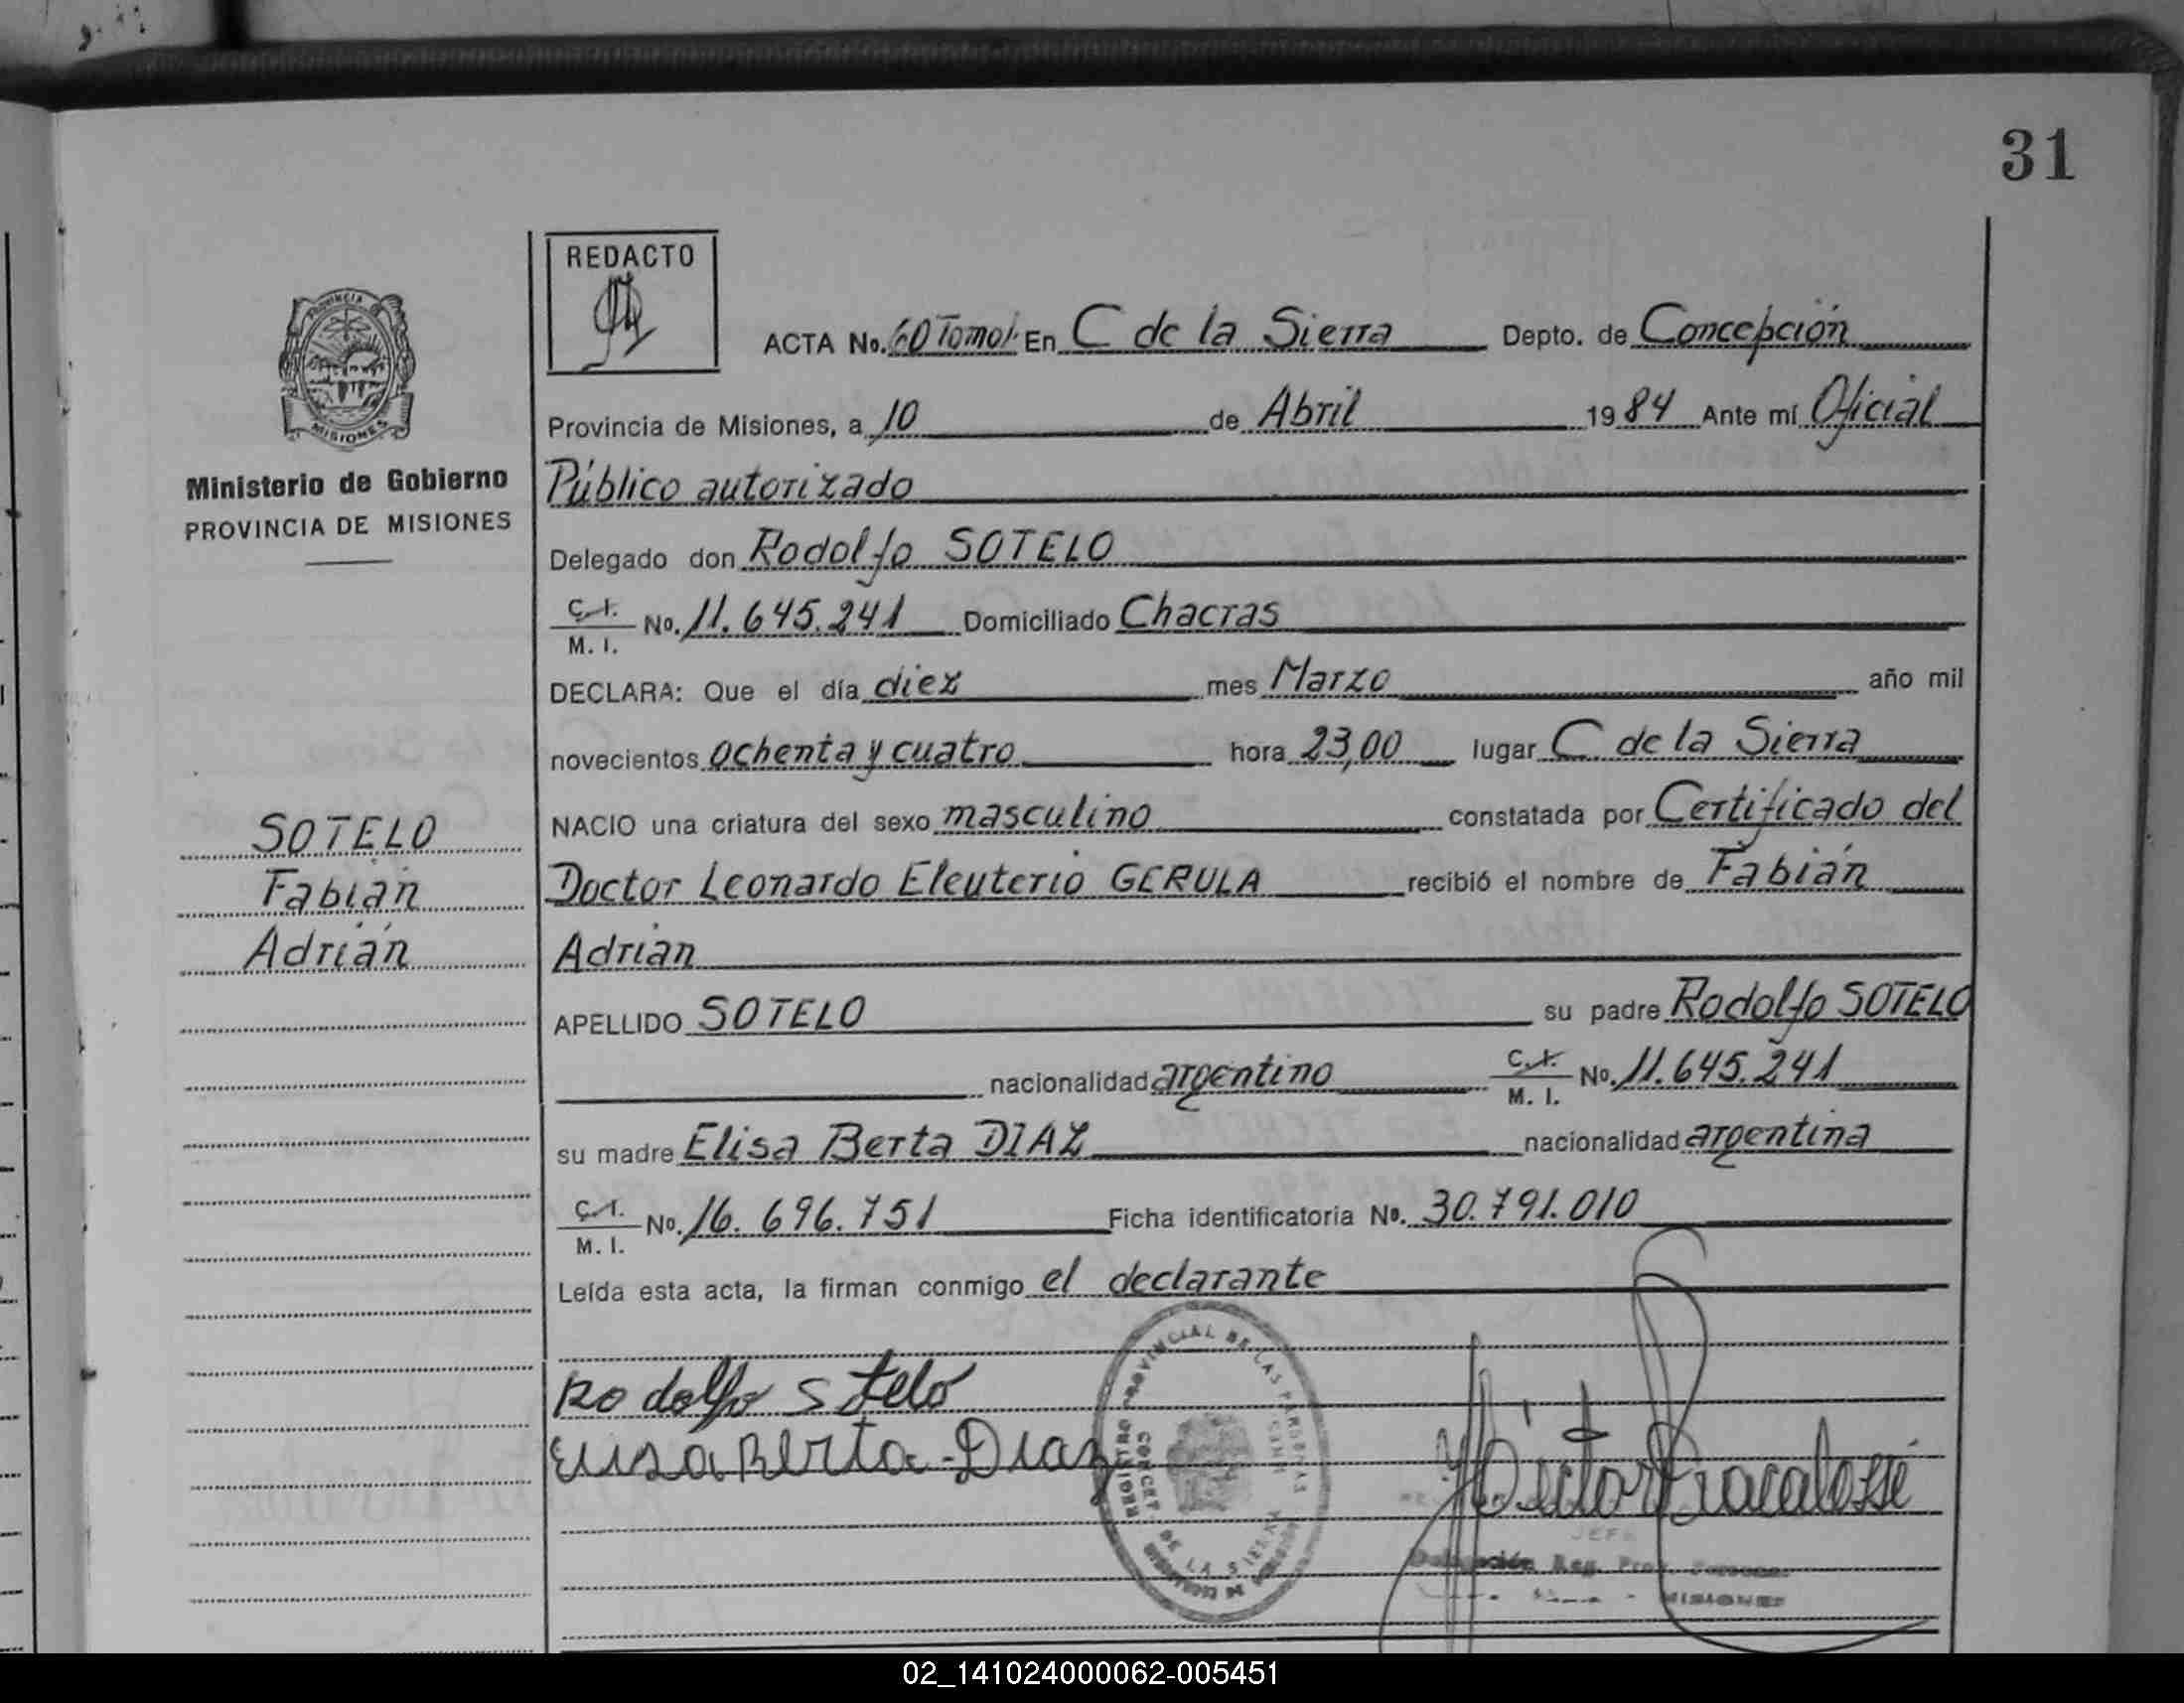 31
REDACTO
ACTA No. 60 Tomo I. En C de la Sierra Depto. de Concepción
Provincia de Misiones, a 10 de Abril 1984 Ante mí Oficial
Ministerio de Gobierno
PROVINCIA DE MISIONES
Público autorizado
Delegado don Rodolfo SOTELO
C. I. M. I. No. 11.645.241 Domiciliado Chacras
DECLARA: Que el día diez mes Marzo año mil
novecientos ochenta y cuatro hora 23,00 lugar C de la Sierra
NACIO una criatura del sexo masculino constatada por Certificado del
SOTELO
Fabián
Adrián
Doctor Leonardo Eleuterio GERULA recibió el nombre de Fabián
Adrian
APELLIDO SOTELO su padre Rodolfo SOTELO
nacionalidad argentino C. I. M. I. No. 11.645.241
su madre Elisa Berta DIAZ nacionalidad argentina
C. I. M. I. No. 16.696.751 Ficha identificatoria No. 30.791.010
Leída esta acta, la firman conmigo el declarante
Rodolfo Stelo
Elisa Berta - Diaz
REGISTRO PROVINCIAL DE LAS PERSONAS
CONCEP. DE LA SIERRA
JEFE
Delegación Reg. Prov. Personas
MISIONES
02_141024000062-005451